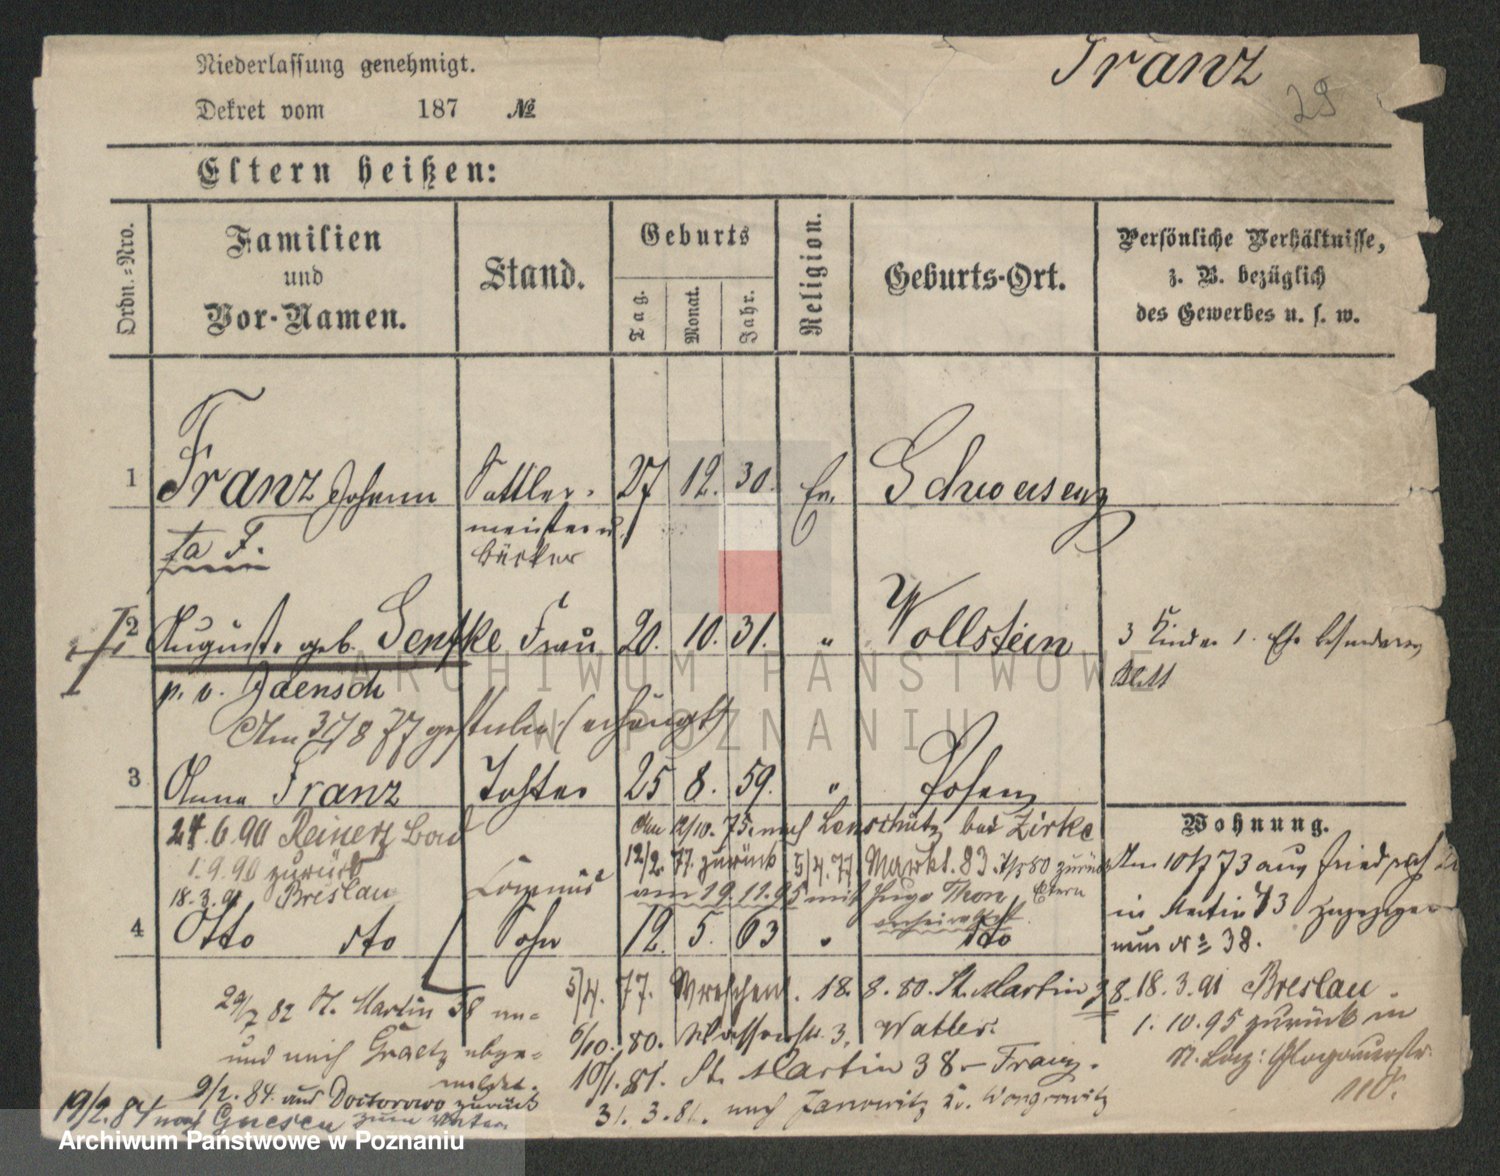 Franz
29
Niederlassung genehmigt.
Dekret vom 187 №
Eltern heißen:
Ordn.-Nro.
Familien und Vor-Namen.
Stand.
Geburts
Tag.
Monat.
Jahr.
Religion.
Geburts-Ort.
Persönliche Verhältnisse,
z. B. bezüglich
des Gewerbes u. s. w.
1 Franz Johann Sattler- 27 12. 30. Ev. Schwersenz
meister u.
ta F.
2 Auguste geb. Genske Frau 20. 10. 31. " Wollstein
3 Kinder 1. Ehe besonderes
Blatt
p. v. Jaensch
Am 31/8 77 gestorben (erhängt)
3 Anna Franz Tochter 25 8. 59. " Posen
Wohnung.
24.6.90 Reinerz Bad
1.9.90 zurück
18.3.91 Breslau
Am 12/10. 75. nach Lenschütz bei Zirke
12/2. 77. zurück 5/4. 77. Markt. 83 zurück
am 19.11.95 mit Hugo Thon
verheirathet
Am 10/7 73 aus
in Martin 73 zugezogen
nun № 38.
4 Otto dto Sohn 12. 5. 63 " dto
5/4. 77. Wreschen. 18. 8. 80. St. Martin 38.
18.3.91 Breslau.
29/7 82 St. Martin 38
6/10. 80. 3,
1. 10. 95 zurück in
und nach Graetz abge-
meldet.
10/1. 81. St. Martin 38 - Franz.
9/2. 84. aus Doctorowo zurück
31. 3. 81. nach Janowitz Kr. Wongrowitz
19/2. 84 nach Gnesen zum
ARCHIWUM PAŃSTWOWE
W POZNANIU
Archiwum Państwowe w Poznaniu